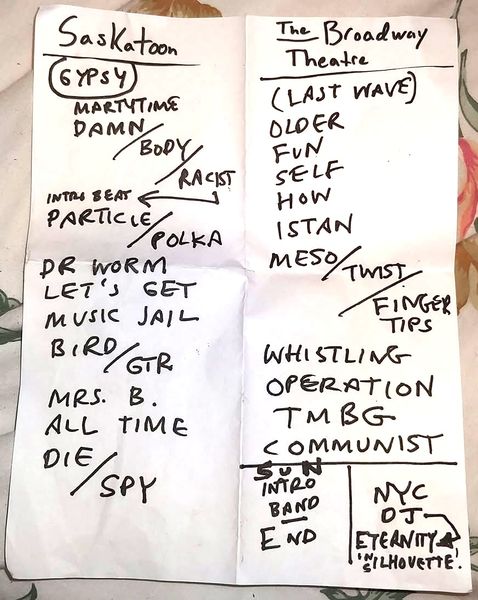 Saskatoon
GYPSY
MARTYTIME
DAMN/
BODY/
RACIST
INTRO BEAT
PARTICLE/
POLKA
DR WORM
LET'S GET
MUSIC JAIL
BIRD/
GTR
MRS. B.
ALL TIME
DIE/
SPY
The Broadway
Theatre
(LAST WAVE)
OLDER
FUN
SELF
HOW
ISTAN
MESO/
TWIST/
FINGER
TIPS
WHISTLING
OPERATION
TMBG
COMMUNIST
SUN
INTRO
BAND
END
NYC
DJ
ETERNITY
'IN
SILHOVETTE'